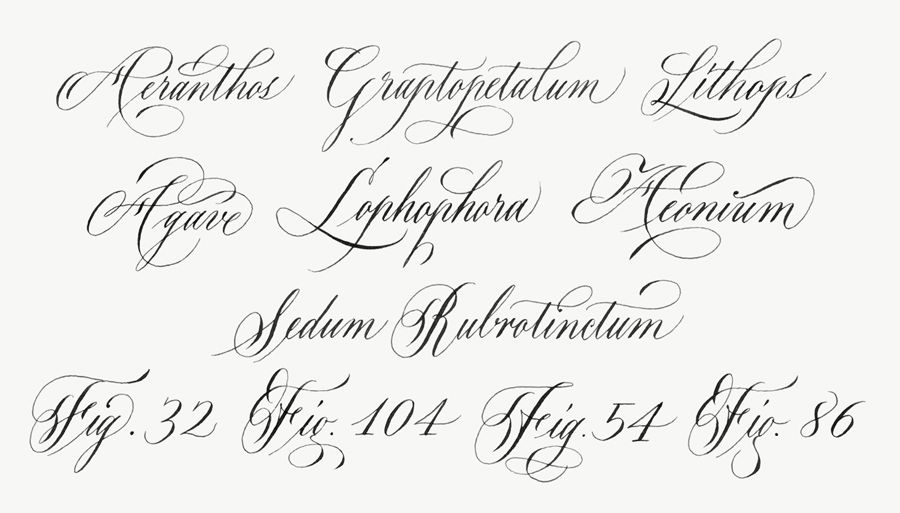 Aeranthos Graptopetalum Lithops
Agave Lophophora Aeonium
Sedum Rubrotinctum
Fig. 32 Fig. 104 Fig. 54 Fig. 86